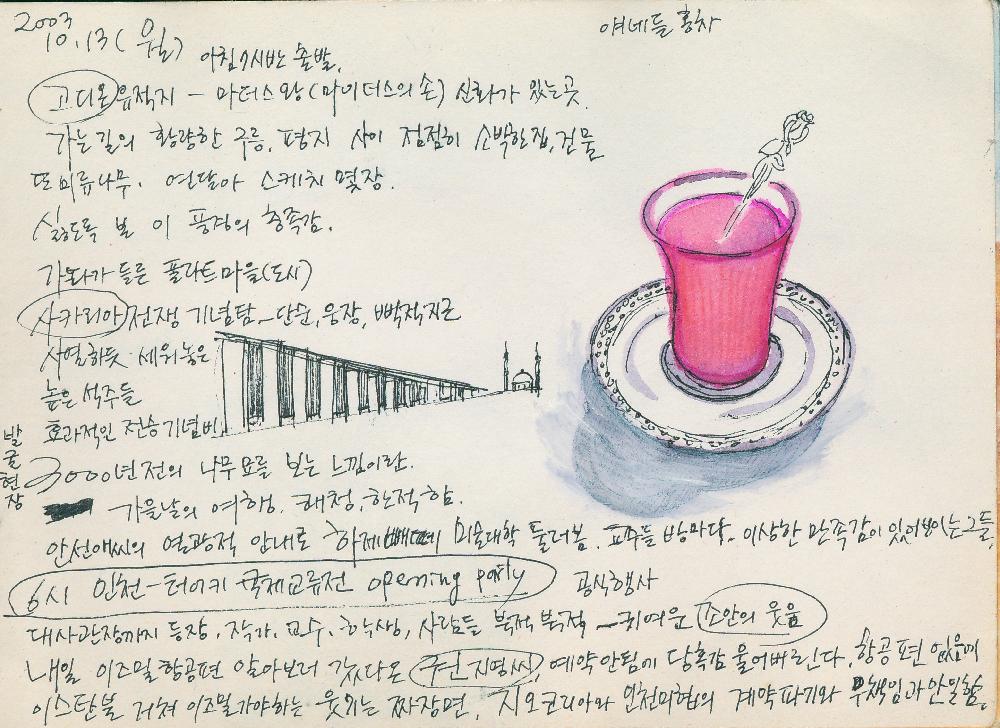 2003
10.13(월) 아침7시반 출발.
얘네들 홍차
고디온 유적지 - 마더스왕(마이더스의 손) 신화가 있는곳.
가는길의 황량한 구릉, 평지 사이 점점히 소박한집, 건물
또 미류나무. 연달아 스케치 몇장.
싫도록 볼 이 풍경의 충족감.
가다가 들른 폴라트마을(도시)
사카리아 전쟁 기념탑_단순, 웅장, 뻑적지근
사열하듯 세워놓은
높은 석주들
효과적인 전승기념비.
발굴현장
3000년전의 나무 묘를 보는 느낌이란.
가을날의 여행. 쾌청, 한적함.
안선애씨의 열광적 안내로 하제 미술대학 둘러봄. 교수들 방마다. 이상한 만족감이 있어보이는 그들,
6시 인천-터어키 국제교류전 opening party 공식행사
대사관장까지 등장. 작가, 교수, 학생, 사람들 북적북적 - 귀여운 소안의 웃음
내일 이즈밀항공편 알아보러 갔다온 권지영씨, 예약안됨에 당혹감 울어버린다. 항공편 없음에
이스탄불 거쳐 이즈밀가야하는 웃기는 짜장면, 지오코리아와 인천미협의 계약파기와 무책임과 안일함.